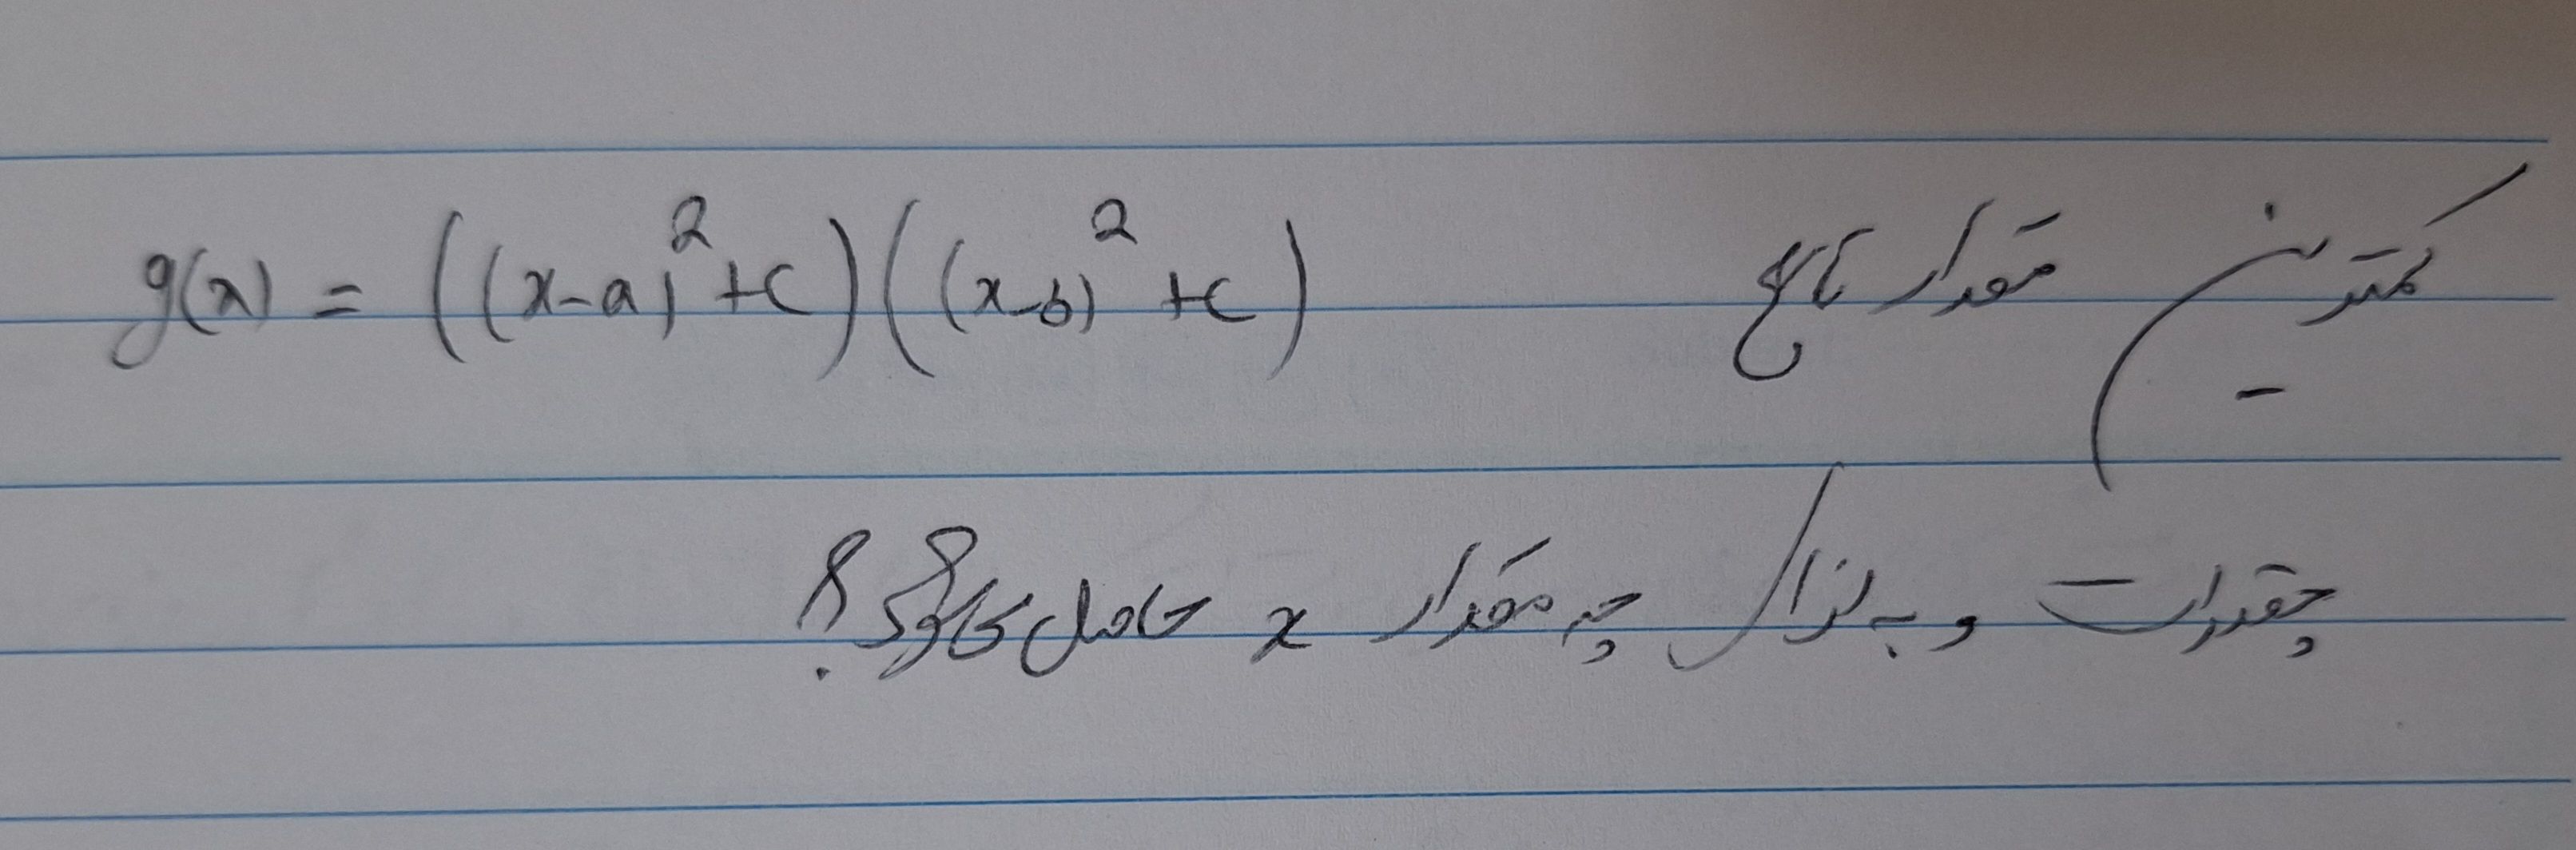 کمترین مقدار تابع g(x) = ((x-a)²+c)((x-b)²+c)
چقدر است و به ازای چه مقدار x حاصل می‌شود؟